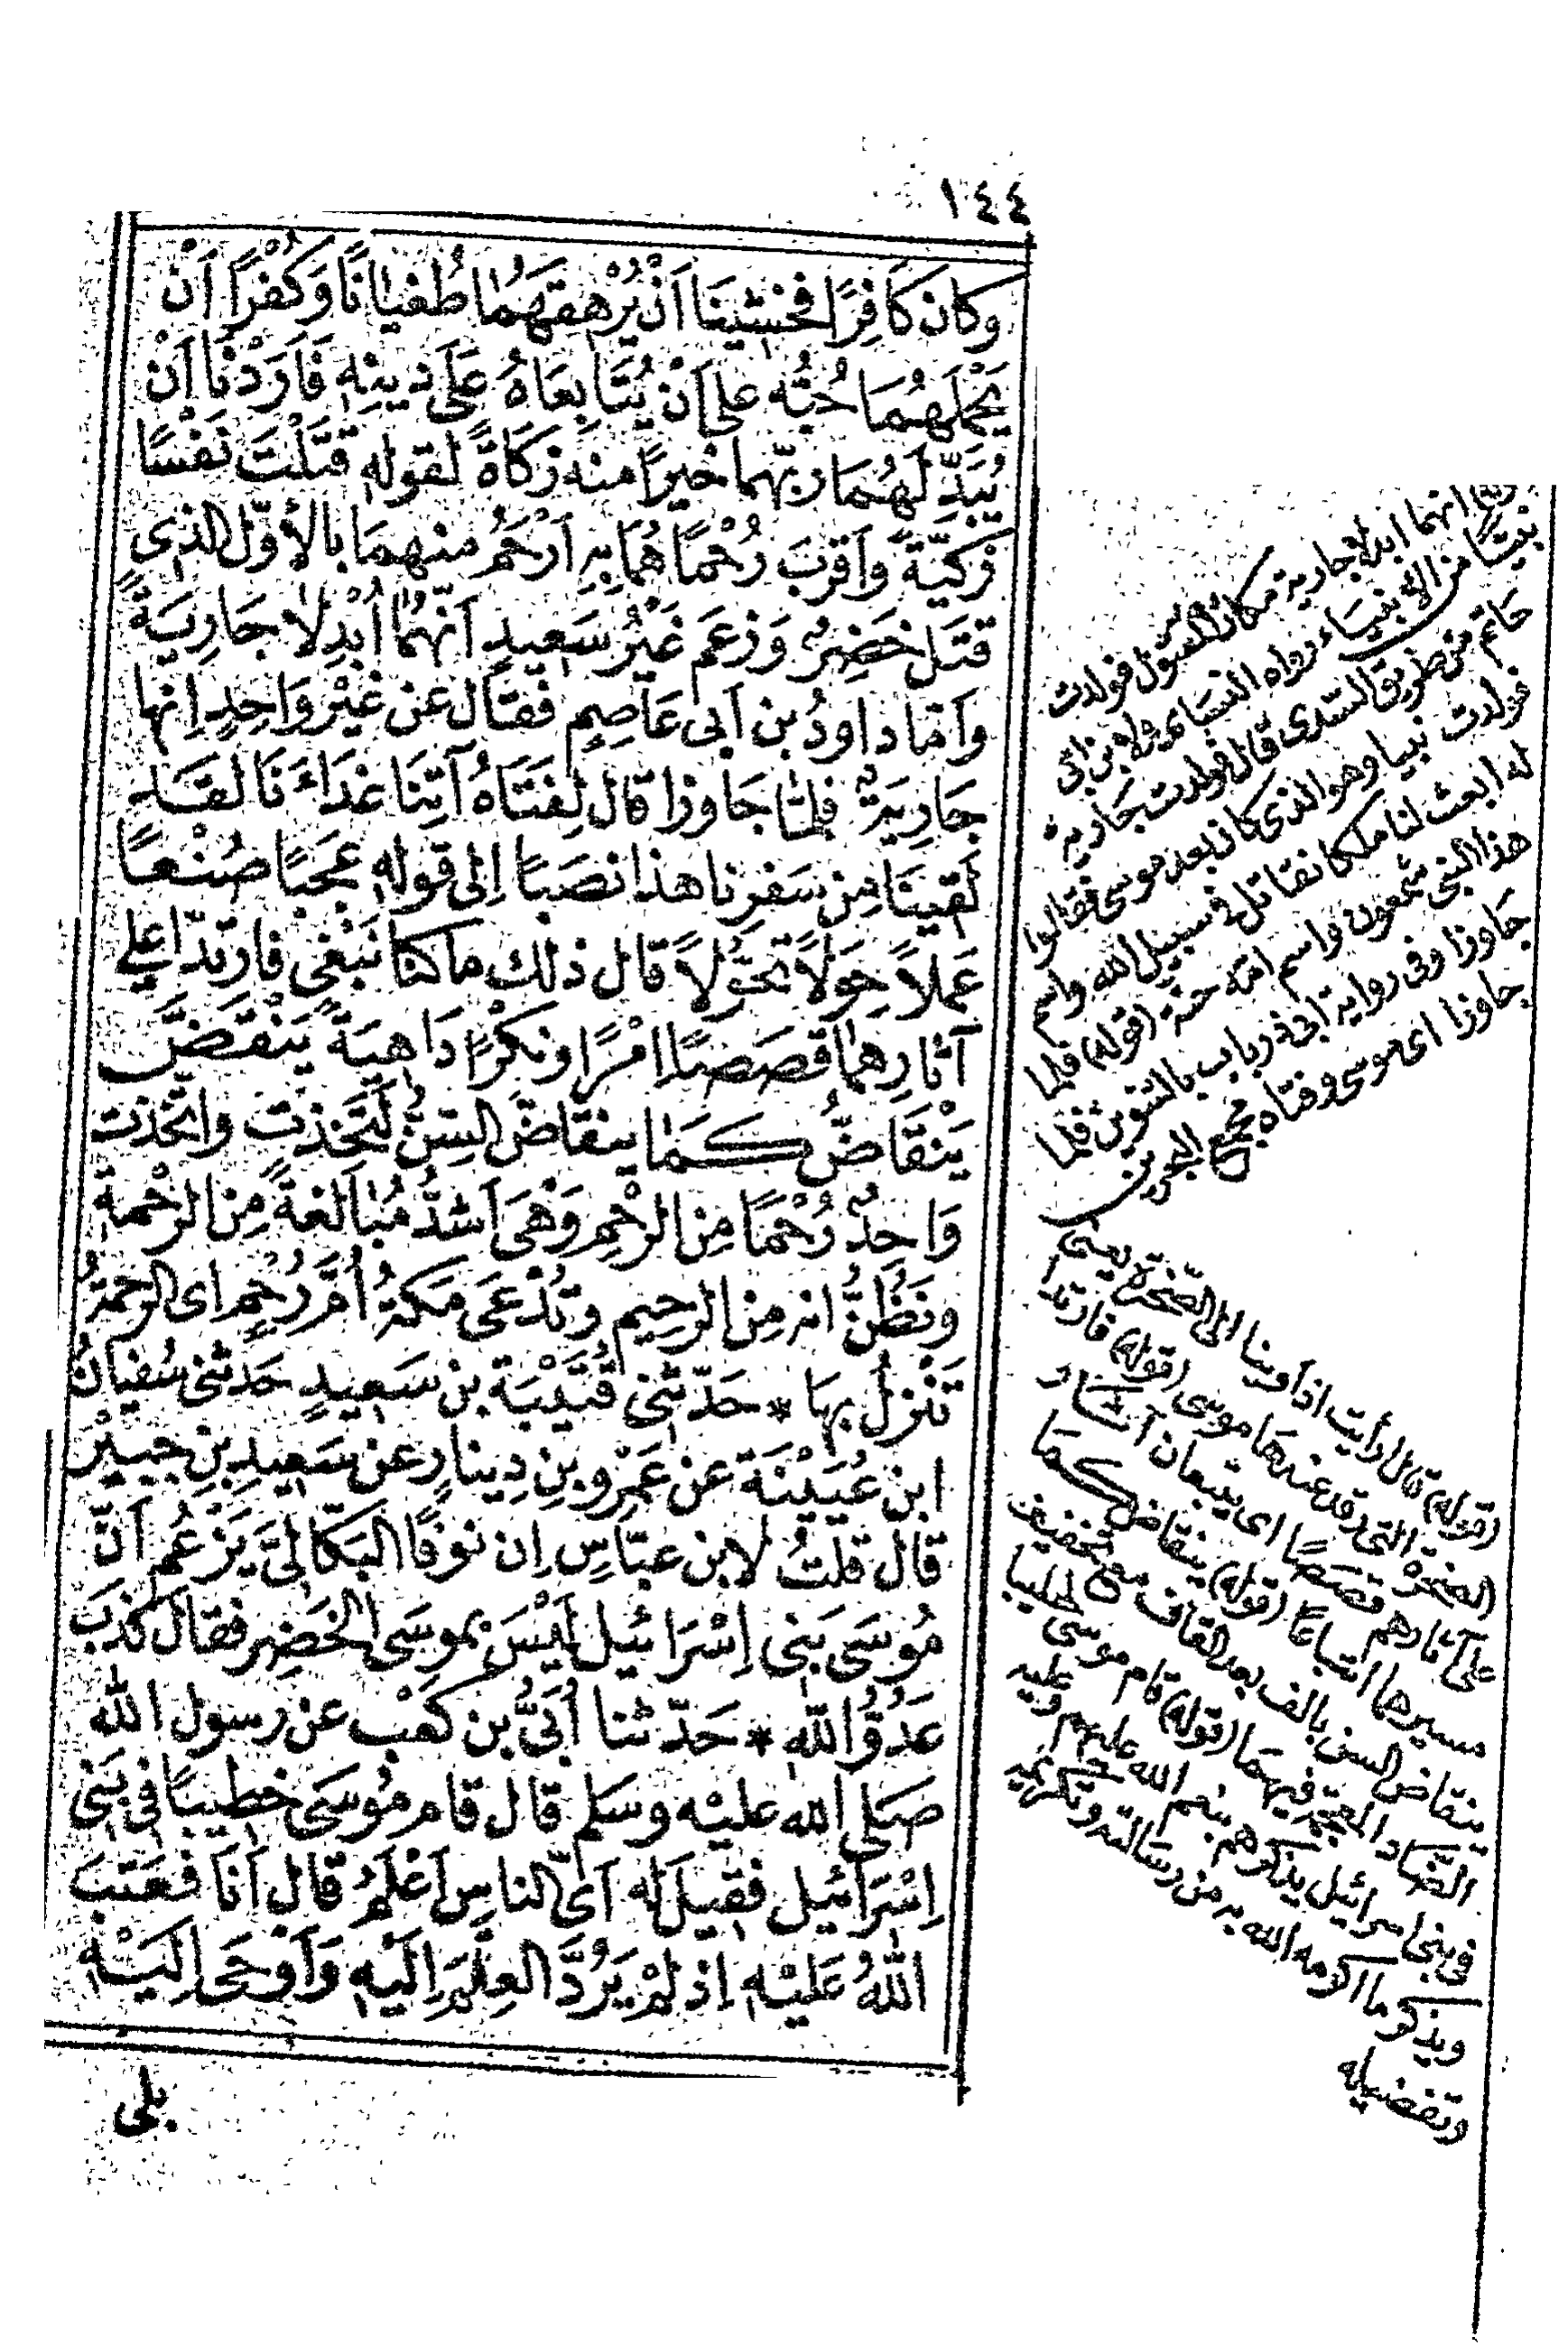 ١٤٤
وكان كَافِرًا فَخَشِينَا اَنْ يُرْهِقَهُمَا طُغْيَانًا وَكُفْرًا اَنْ
يَحْمِلَهُمَا حُبُّه على اَنْ يُتَابِعَاهُ عَلَى دِينِهِ فَاَرَدْنَا اَنْ
يُبَدِّلَهُمَا ربّهما خيرًا منه زَكَاةً لقوله قَتَلْتَ نَفْسًا
زَكِيَّةً وَاَقْرَبَ رُحْمًا هُمَا بِهِ اَرْحَمُ منهمَا بالأوّل الذى
قَتَل خَضِرٌ وَزعَم غَيْرُ سَعِيدٍ اَنّهُمَا اُبْدِلَا جَارِيَةً
وَاَمّا دَاوُدُ بن اَبى عَاصِمٍ فَقَال عن غَيْرِ وَاحِدٍ اِنها
جَارِيَةٌ فلمّا جَاوزا قال لِفَتَاهُ آتِنَا غَدَاءَنَا لقَد
لَقِينَا مِن سَفَرِنا هذا نصَبًا اِلى قوله عَجَبًا صُنْعًا
عَمَلاً حِوَلاً تَحَوُّلاً قال ذلك ما كنّا نَبْغِى فارتدّا على
آثارِهِمَا قَصَصًا اِمْرًا ونُكْرًا دَاهِيَةً يَنْقَضُّ
يَنْقَاضُ كَمَا ينقاض السِنُّ لَتَخِذْتَ واتّخذت
وَاحِدٌ رُحْمًا مِن الرُحْمِ وَهْىَ اَشَدُّ مُبَالَغَةً مِن الرَحْمة
ونَظُنُّ انه مِن الرحِيم وتُدْعَى مَكةُ اُمَّ رُحْمٍ اى الرحمةُ
تَنْزِلُ بها * حَدّثنى قُتَيْبَة بن سَعِيدٍ حَدثنى سُفيانُ
ابن عُيَيْنَة عن عَمْرِو بنِ دِينارٍ عن سَعِيدِ بنِ جُبَيْرٍ
قال قلتُ لابن عبّاسٍ اِن نوفًا البَكَالِىَّ يَزْعُمُ اَنّ
مُوسَى بَنى اِسْرَائيل لَيْسَ بموسَى الخَضِرِ فقال كَذَبَ
عَدُوُّ اللهِ * حَدّثنا اُبَىُّ بن كَعْبٍ عن رسول الله
صَلى الله عليْه وسَلم قال قام مُوسَى خطيبًا فى بَنى
اِسْرَائيل فقِيلَ له اَىُّ الناسِ اَعْلَمُ قال اَنَا فَعَتَبَ
اللهُ عَلَيْه اِذ لمْ يَرُدَّ العِلْمَ اِلَيْهِ وَاَوْحَى اِلَيْه
بلى
انهما ابدلا جارية مكان المقتول فولدت
نبيًّا من الانبياء رواه النساءى ولابن ابى
حَاتم من طريق السّدى قال فولدت جَارية
فولدت نبيا وهو الذى كان بعد موسى فقالوا
له ابعث لنا ملكا نقاتل فى سبيل الله واسم
هذا النبى شمعون واسم امّه حنة (قوله) فلما
جَاوزا وفى رواية ابى ذر باب بالتنوين فلما
جاوزا اى موسى وفتاه مجمع البحرين
(قوله) قال ارأيت اذ اَوينا الى الصّخرة يعنى
الصخرة التى رقد عندهَا موسى (قوله) فارتدا
على آثارهم قصَصًا اى يتبعان آثار
مسيرهما اتباعًا (قوله) ينقاض كمَا
ينقاض السن بالف بعد القاف مع تخفيف
الضّاد المعجمة فيهمَا (قوله) قام موسى خطيبا
فى بنى اسرائيل يذكرهم بنعم الله عليهم وعليه
ويذكر ما اكرمه الله به من رسَالته وتكريمه
وتفضيله